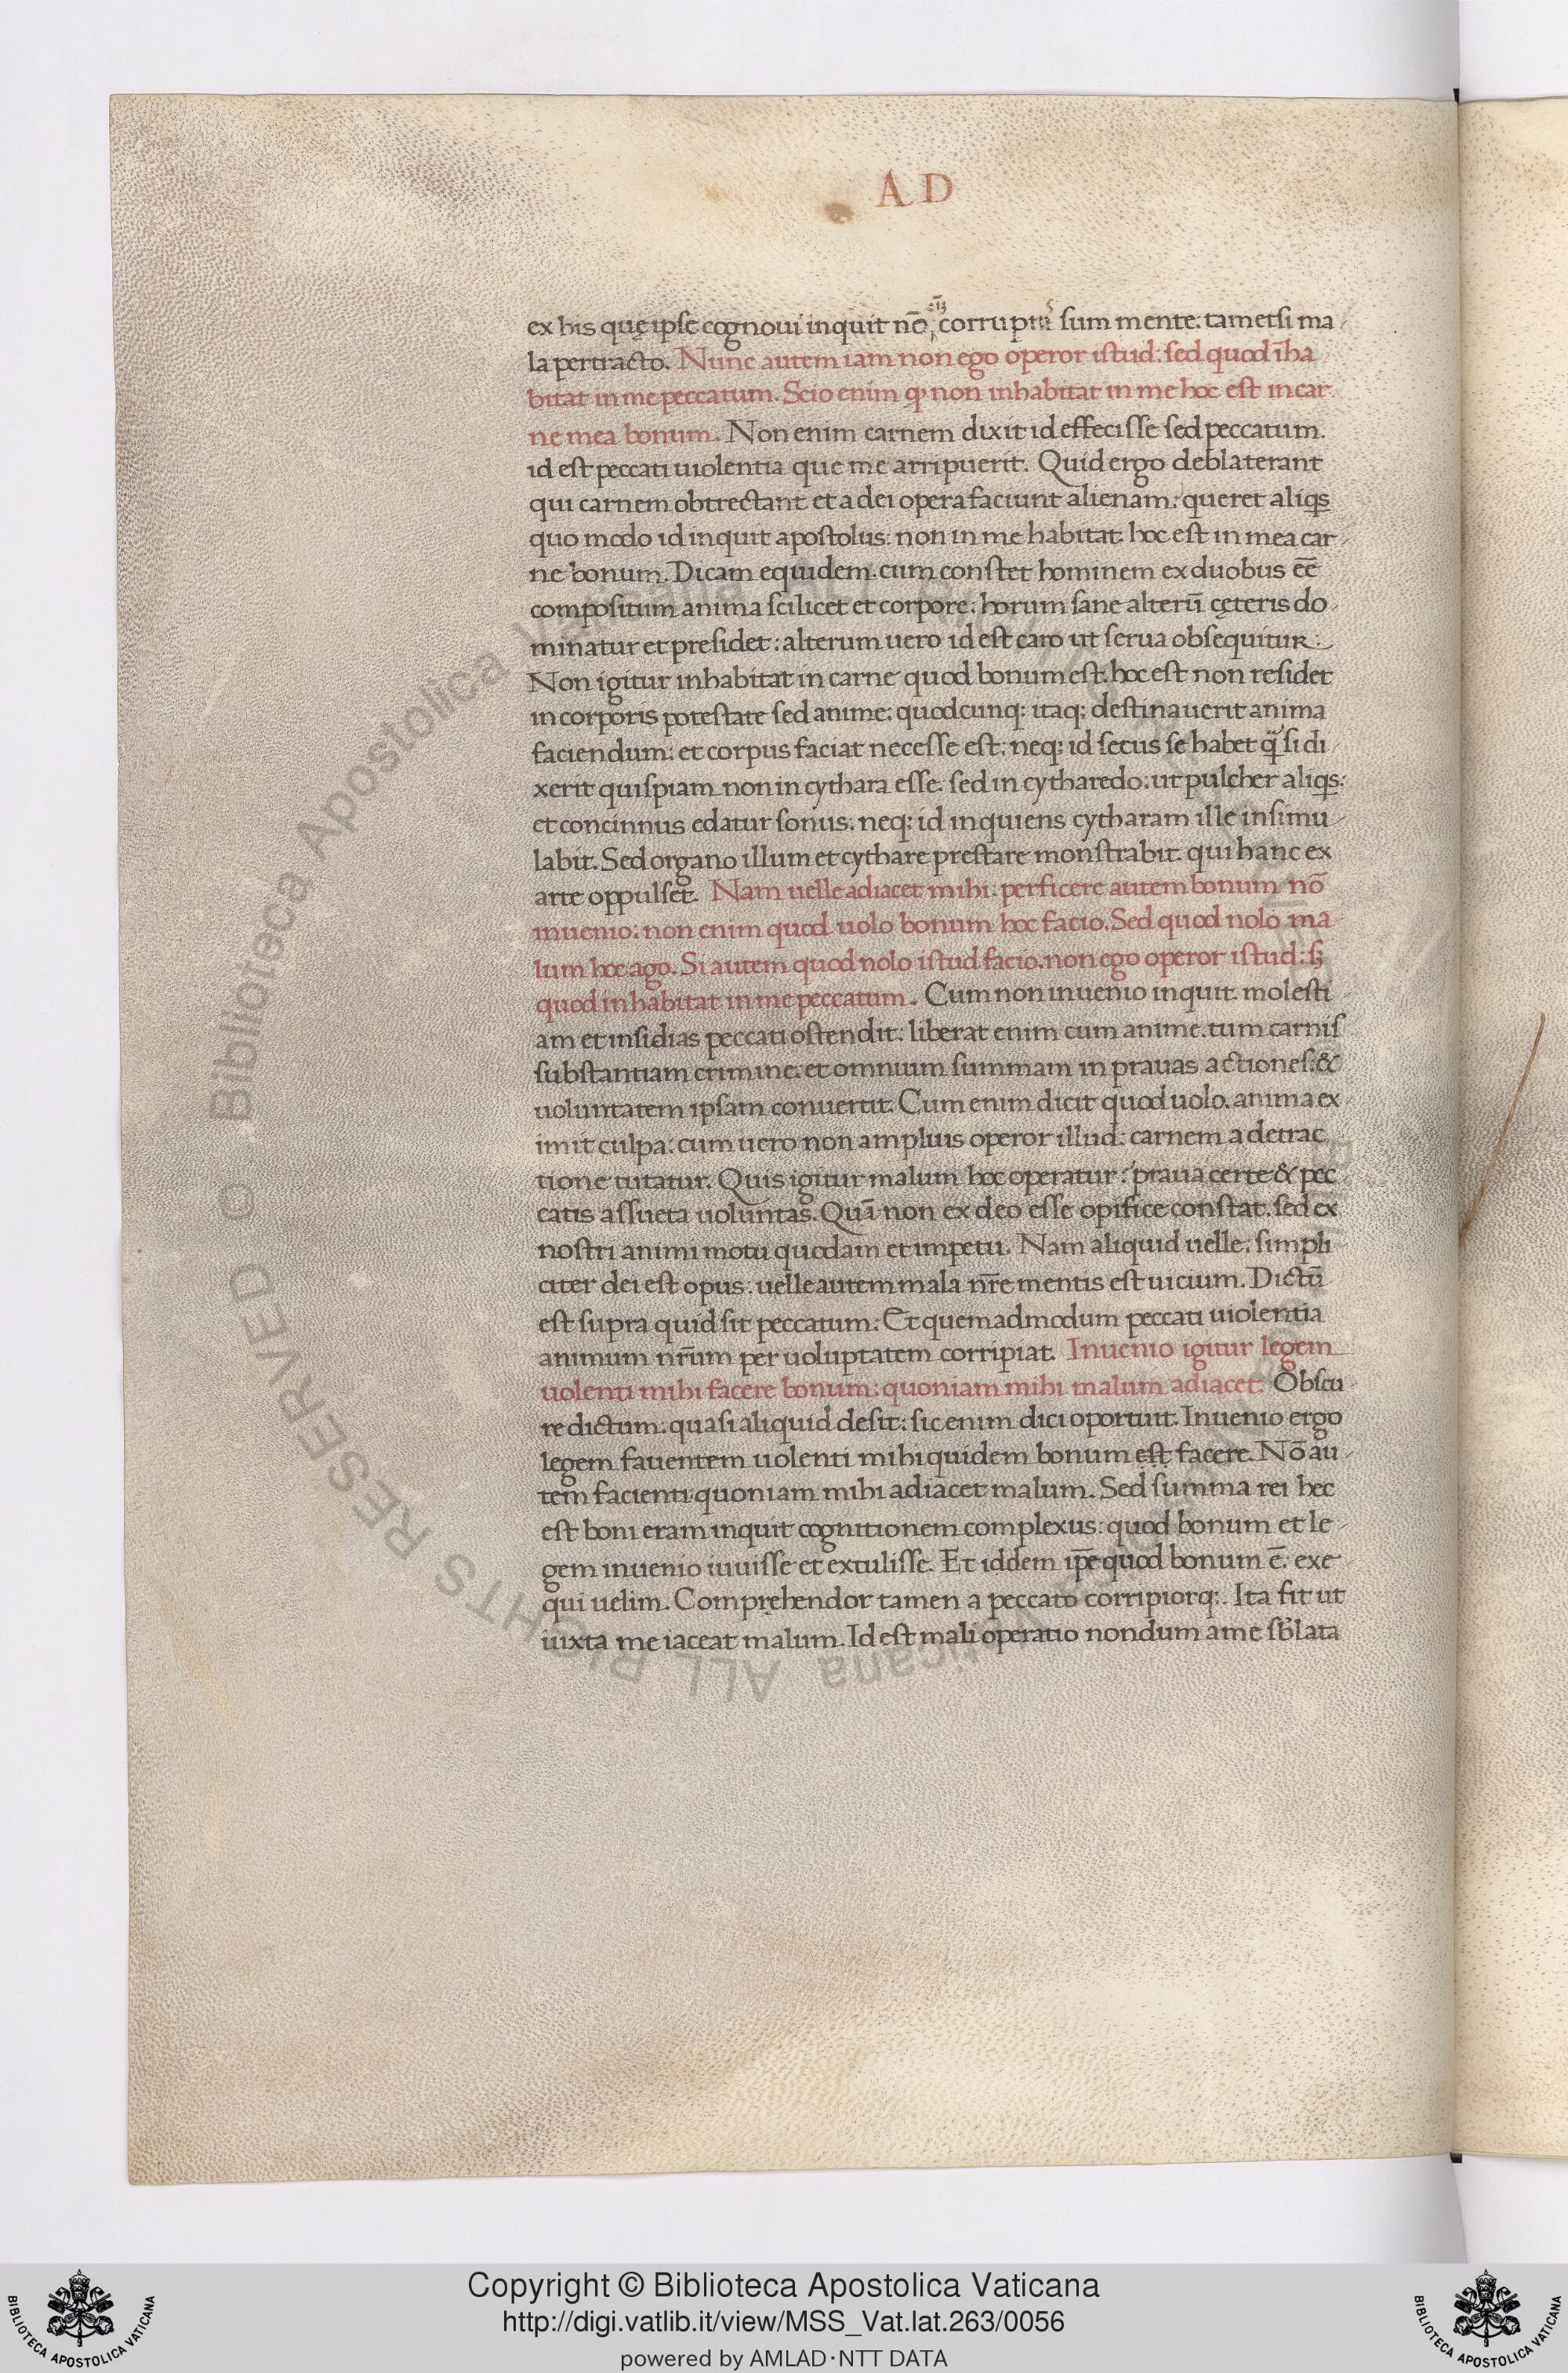 AD
ex his quę ipse cognoui inquit nō corruptus sum mente: tametsi ma
la pertracto. Nunc autem iam non ego operor istud: sed quod īha
bitat in me peccatum. Scio enim ꝙ non inhabitat in me hoc est in car
ne mea bonum. Non enim carnem dixit id effecisse sed peccatum.
id est peccati uiolentia que me arripuerit. Quid ergo deblaterant
qui carnem obtrectant et a dei opera faciunt alienam: queret aliqs
quo modo id inquit apostolus: non in me habitat. hoc est in mea car
ne bonum. Dicam equidem. cum constet hominem ex duobus eē
compositum anima scilicet et corpore: horum sane alterū cęteris do
minatur et presidet: alterum uero id est caro ut serua obsequitur:
Non igitur inhabitat in carne quod bonum est. hoc est non residet
in corporis potestate sed anime: quodcunq; itaq; destinauerit anima
faciendum: et corpus faciat necesse est: neq; id secus se habet q̃ si di
xerit quispiam non in cythara esse. sed in cytharedo: ut pulcher aliqs:
et concinnus edatur sonus. neq; id inquiens cytharam ille insimu
labit. Sed organo illum et cythare prestare monstrabit. qui hanc ex
arte oppulset. Nam uelle adiacet mihi: perficere autem bonum nō
inuenio: non enim quod uolo bonum hoc facio. Sed quod nolo ma
lum hoc ago. Si autem quod nolo istud facio. non ego operor istud: sꝫ
quod inhabitat in me peccatum. Cum non inuenio inquit. molesti
am et insidias peccati ostendit: liberat enim cum anime. tum carnis
substantiam crimine: et omnium summam in prauas actiones: &
uoluntatem ipsam conuertit. Cum enim dicit quod uolo. anima ex
imit culpa: cum uero non ampluis operor illud: carnem a detrac
tione tutatur. Quis igitur malum hoc operatur: praua certe & pec
catis assueta uoluntas. Quā non ex deo esse opifice constat. sed ex
nostri animi motu quodam et impetu. Nam aliquid uelle: simpli
citer dei est opus: uelle autem mala nr̄e mentis est uicium. Dictū
est supra quid sit peccatum: Et quemadmodum peccati uiolentia
animum nr̄um per uoluptatem corripiat. Inuenio igitur legem
uolenti mihi facere bonum: quoniam mihi malum adiacet: Obscu
re dictum: quasi aliquid desit: sic enim dici oportuit. Inuenio ergo
legem fauentem uolenti mihi quidem bonum est facere. Nō au
tem facienti quoniam mihi adiacet malum. Sed summa rei hec
est boni eram inquit cognitionem complexus: quod bonum et le
gem inuenio iuuisse et extulisse. Et iddem ip̄e quod bonum ē: exe
qui uelim. Comprehendor tamen a peccato corripiorq;. Ita fit ut
iuxta me iaceat malum. Id est mali operatio nondum a me sb̄lata
Biblioteca Apostolica Vaticana ALL RIGHTS RESERVED ©
Copyright © Biblioteca Apostolica Vaticana
http://digi.vatlib.it/view/MSS_Vat.lat.263/0056
powered by AMLAD·NTT DATA
BIBLIOTECA APOSTOLICA VATICANA
BIBLIOTECA APOSTOLICA VATICANA